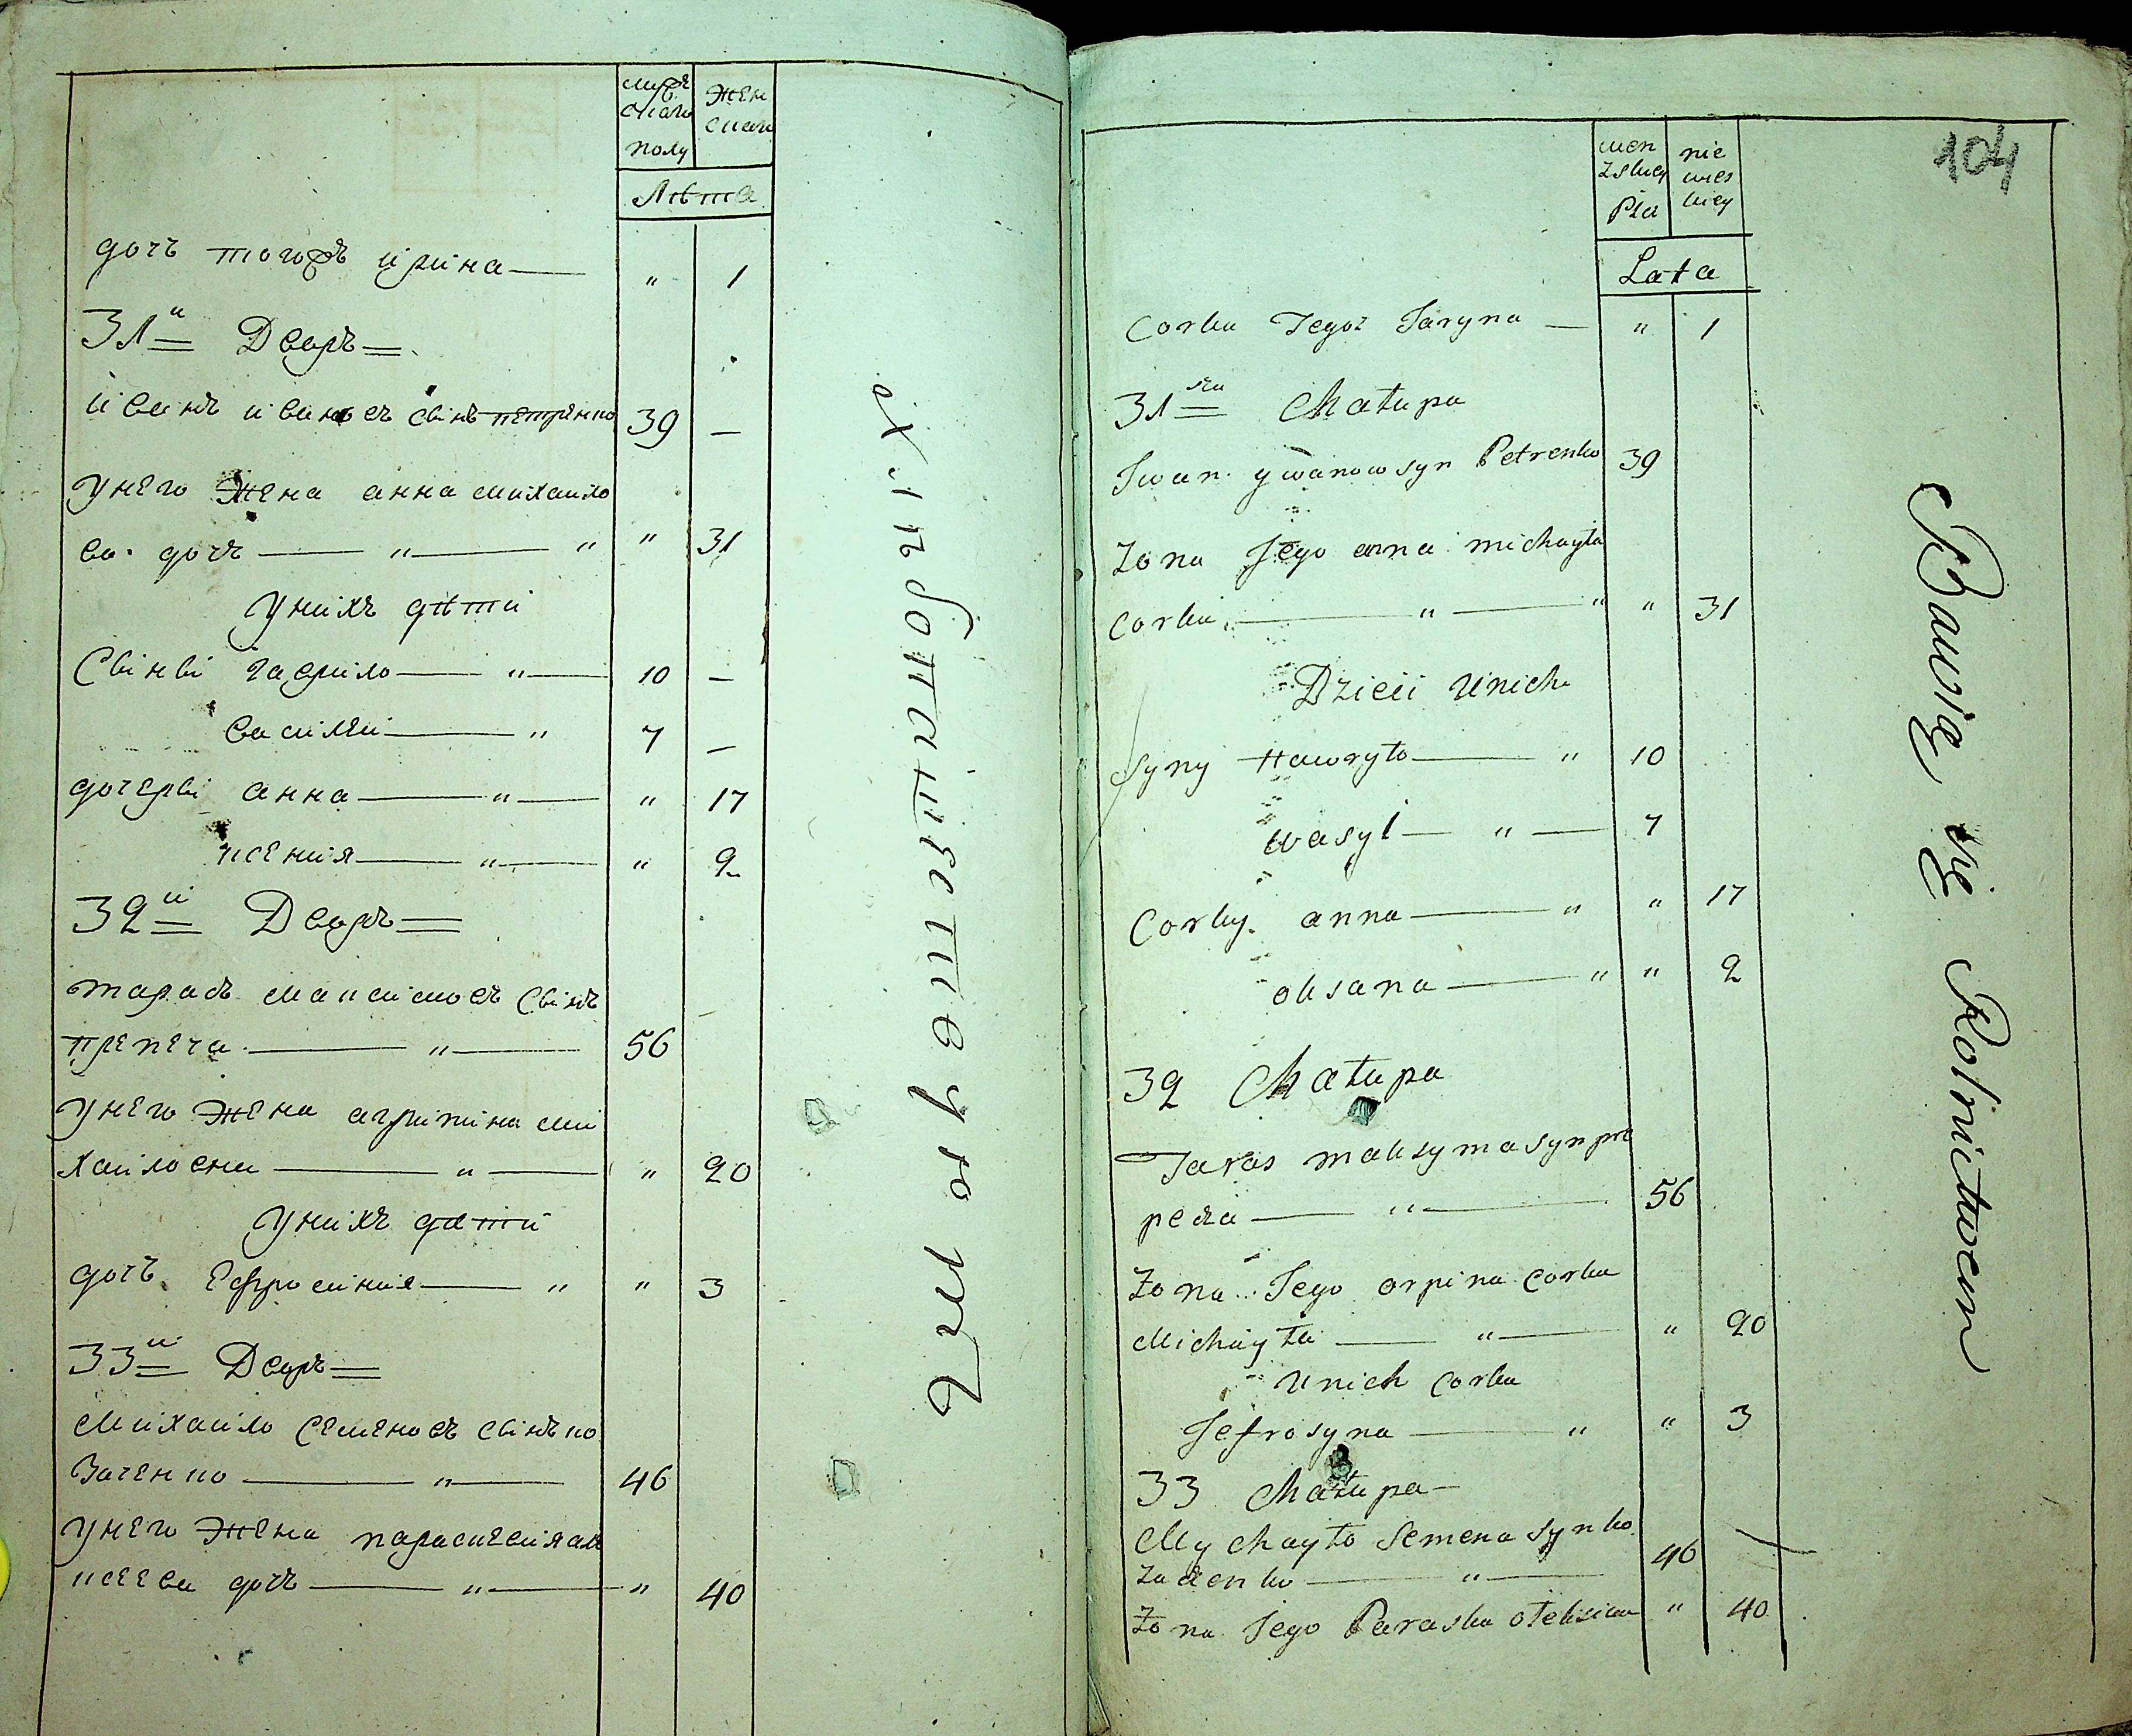 мужескаго полу
Женскаго
Лѣта
дочъ тогожъ ирина — " 1
31й Дворъ
иванъ ивановъ сынъ петренко 39 —
унего жена анна михайло
ва дочъ — " — " " 31
унихъ дѣти
Сыны гаврило — " — 10 —
василей — " 7 —
дочеры анна — " — " 17
ксения — " — " 2
32й Дворъ
тарасъ максимовъ сынъ
препеча — " — 56
унего жена агрипина ми
хайловна — " — " 20
унихъ дѣти
дочъ Ефросиния — " " 3
33й Дворъ
михайло семеновъ сынъ ко
заченко — " — 46
унего жена параскевия але
ксеева дочъ — " — " 40
Хлѣбопашествуютъ
104
menzskiey Płci
niewieskiey
Lata
Corka Tegoż Jaryna — " 1
31sza Chałupa
Iwan ywanow syn Petrenko 39
Zona Jego anna michayła
Corka — " — " " 31
Dzieci Unich
Syny Hawryło — " 10
wasyl — " — 7
Corky anna — " " 17
oksana — " " 2
32 Chałupa
Taras maksyma syn pre
pecza — " — 56
Zona Jego orpina corka
Michayła — " — " 20
Unich corka
Jefrosyna — " " 3
33 Chałupa
Mychayło Semena syn ko
zaczenko — " — 46
Zona Jego Paraska ołeksiewa " 40
Bawią się Rolnictwem